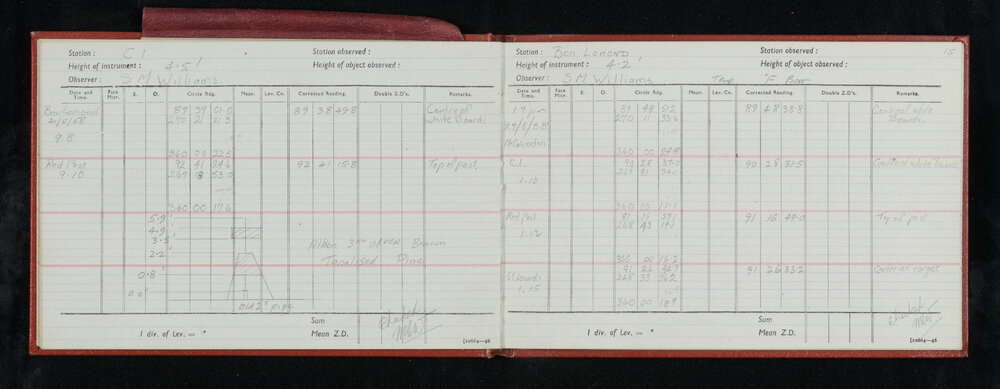 Station : C 1 Station observed :
Height of instrument : 4·5' Height of object observed :
Observer : S M Williams
Date and Time. Face Micr. E. O. Circle Rdg. Mean. Lev. Co. Corrected Reading. Double Z.D's. Remarks.
89 39 01.0 89 38 49.8 Centre of
2/8/58 270 21 21.5 white Boards
9.8
360 00 22.5
Red Post 92 41 24.6 92 41 15.8 Top of post
9.10 267 18 53.0
360 00 17.6
5.9'
4.9
3.5'
3RD ORDER Beacon
2.2'
Tanalised Pine
0.8'
0.0'
old 2" pipe
1 div. of Lev. = " Sum
Mean Z.D.
Checked
[10664—46
Station : BEN LOMOND Station observed : 15
Height of instrument : 4.2' Height of object observed :
Observer : S M Williams Temp °F Bar
Date and Time. Face Micr. E. O. Circle Rdg. Mean. Lev. Co. Corrected Reading. Double Z.D's. Remarks.
1.7 pm 89 48 51.2 89 48 38.8 Centre of white
27/8/58 270 11 33.6 Boards.
360 00 24.8
C.1. 90 28 37.0 90 28 31.5 Centre of white Boards
1.10 269 31 34.1
360 00 11.1
Red Post 91 16 59.1 91 16 49.0 Top of post
1.12 268 43 19.1
360 00 16.2
91 26 42.7 91 26 33.2 Centre of target.
1.15 268 33 36.2
360 00 18.9
1 div. of Lev. = " Sum
Mean Z.D.
Checked
[10664—46